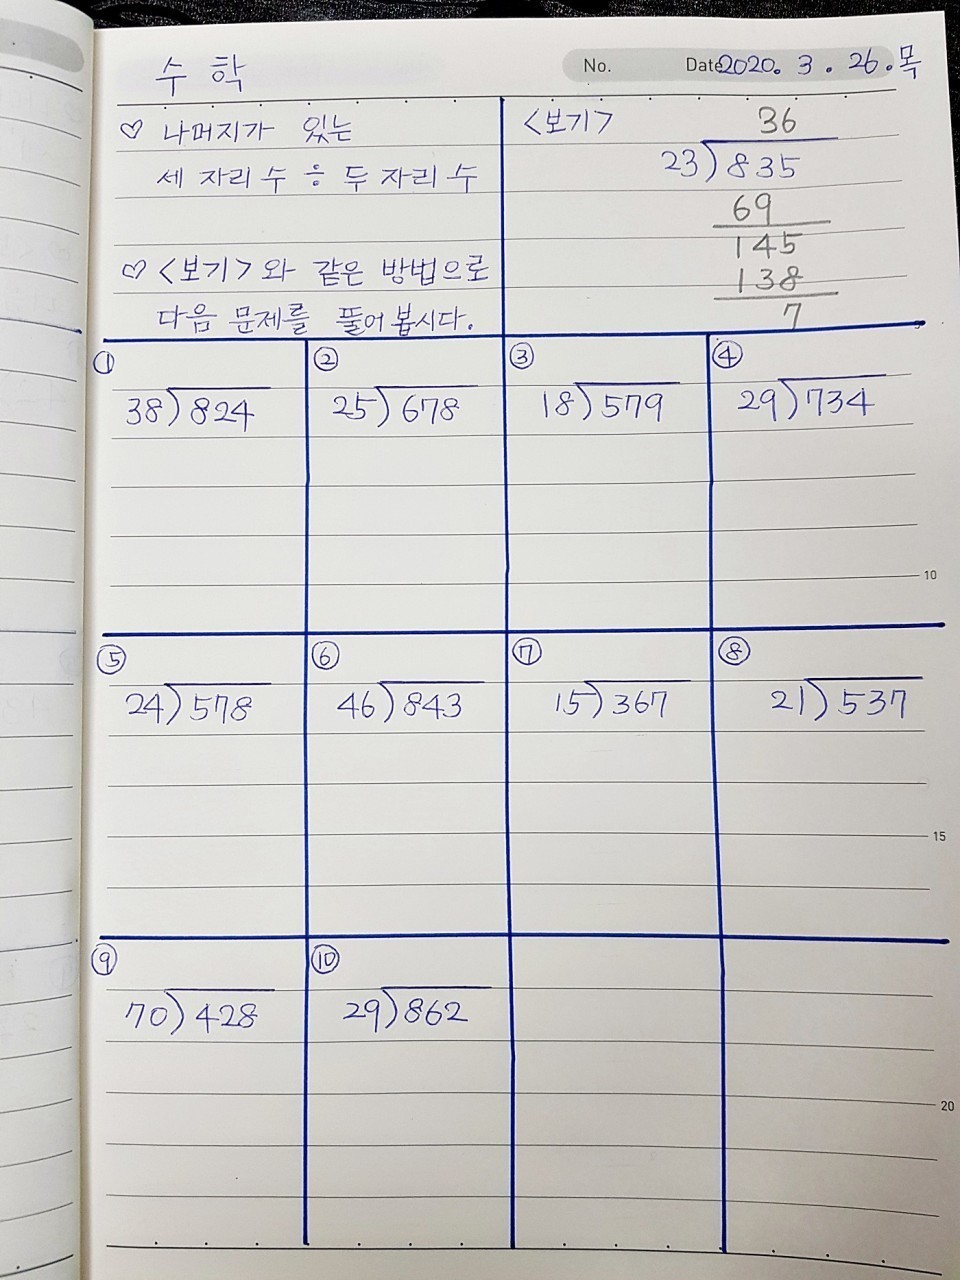 수학
No. Date 2020. 3. 26. 목
♡ 나머지가 있는
세 자리 수 ÷ 두 자리 수
♡ <보기>와 같은 방법으로
다음 문제를 풀어 봅시다.
<보기>
36
23)835
69
145
138
7
① 38)824
② 25)678
③ 18)579
④ 29)734
10
⑤ 24)578
⑥ 46)843
⑦ 15)367
⑧ 21)537
15
⑨ 70)428
⑩ 29)862
20